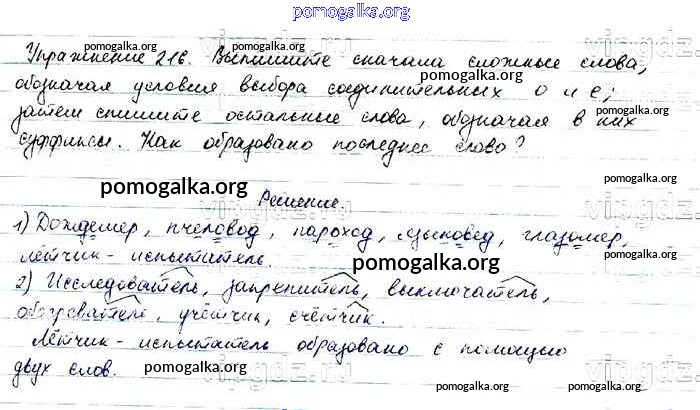 pomogalka.org
Упражнение 216. Выпишите сначала сложные слова,
обозначая условия выбора соединительных о и е;
затем спишите остальные слова, обозначая в них
суффиксы. Как образовано последнее слово?
Решение.
1) Дождемер, пчеловод, пароход, языковед, глазомер,
лётчик-испытатель.
2) Исследователь, закрепитель, выключатель,
обогреватель, учётчик, счётчик.
Лётчик-испытатель образовано с помощью
двух слов.
pomogalka.org
pomogalka.org
pomogalka.org
pomogalka.org
pomogalka.org
pomogalka.org
pomogalka.org
pomogalka.org
pomogalka.org